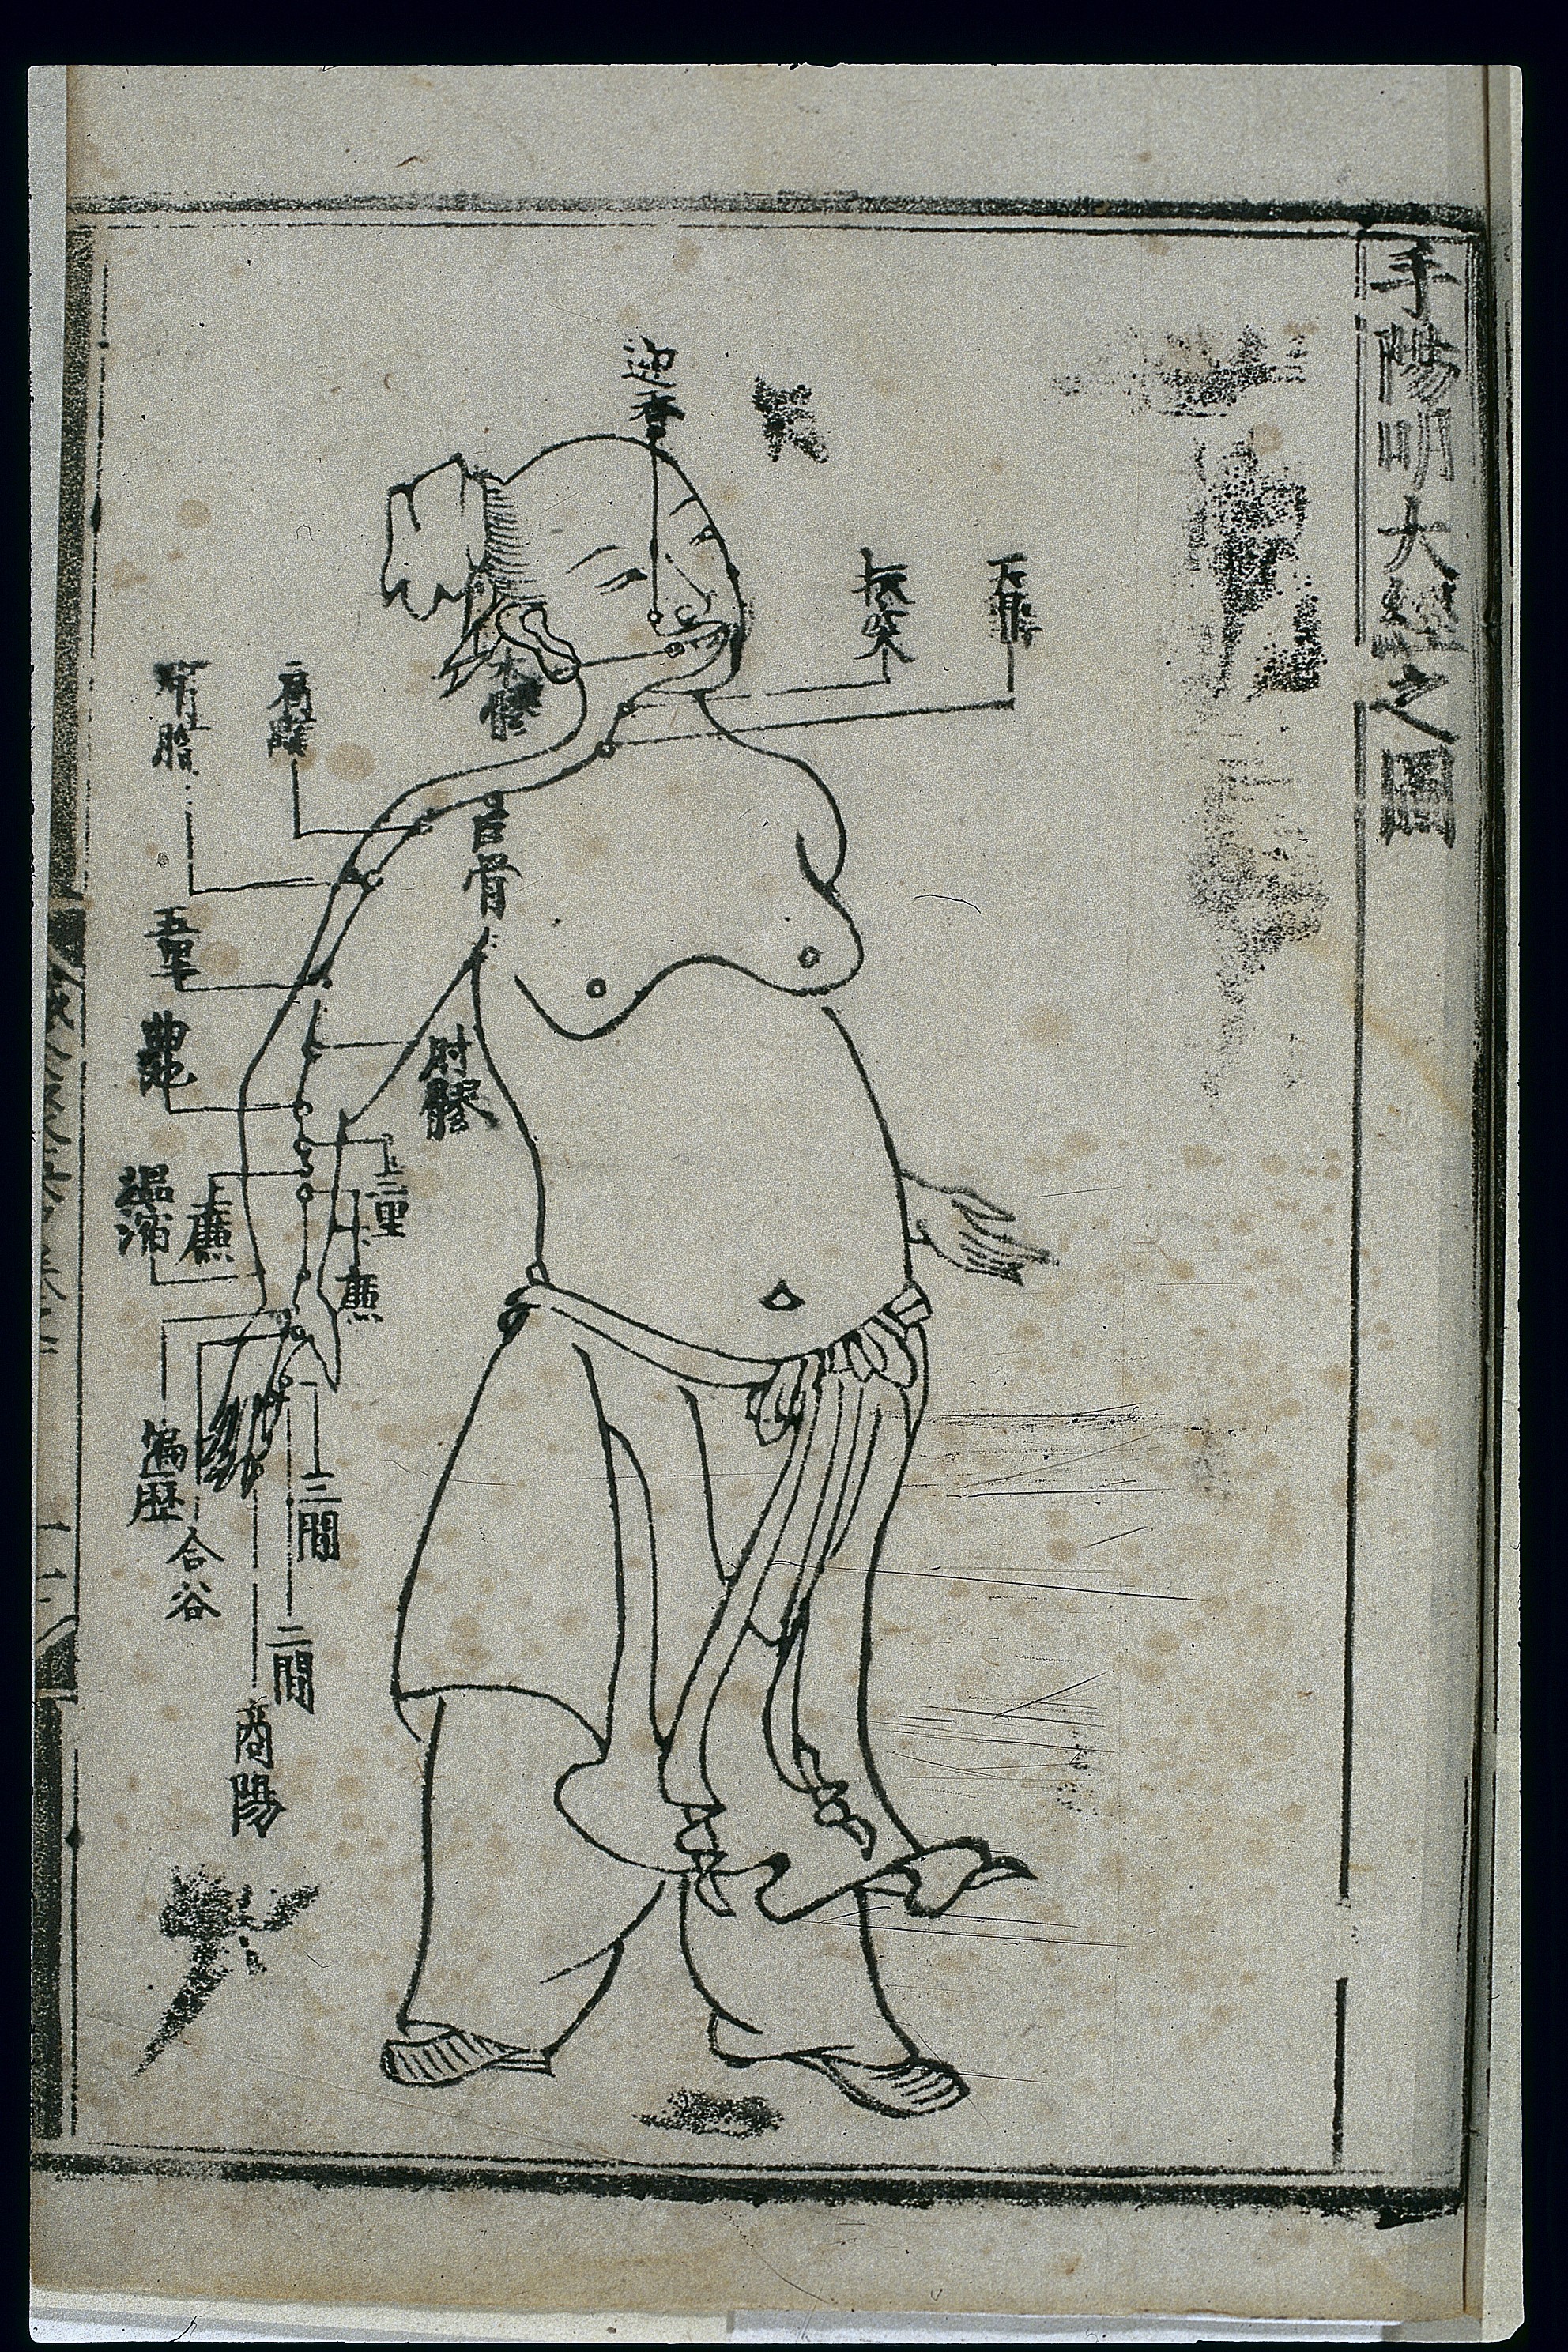 手陽明大經之圖
迎香
扶突
天鼎
禾髎
肩髃
臂臑
巨骨
五里
肘髎
曲池
三里
上廉
温溜
下廉
偏歷
合谷
三間
二間
商陽